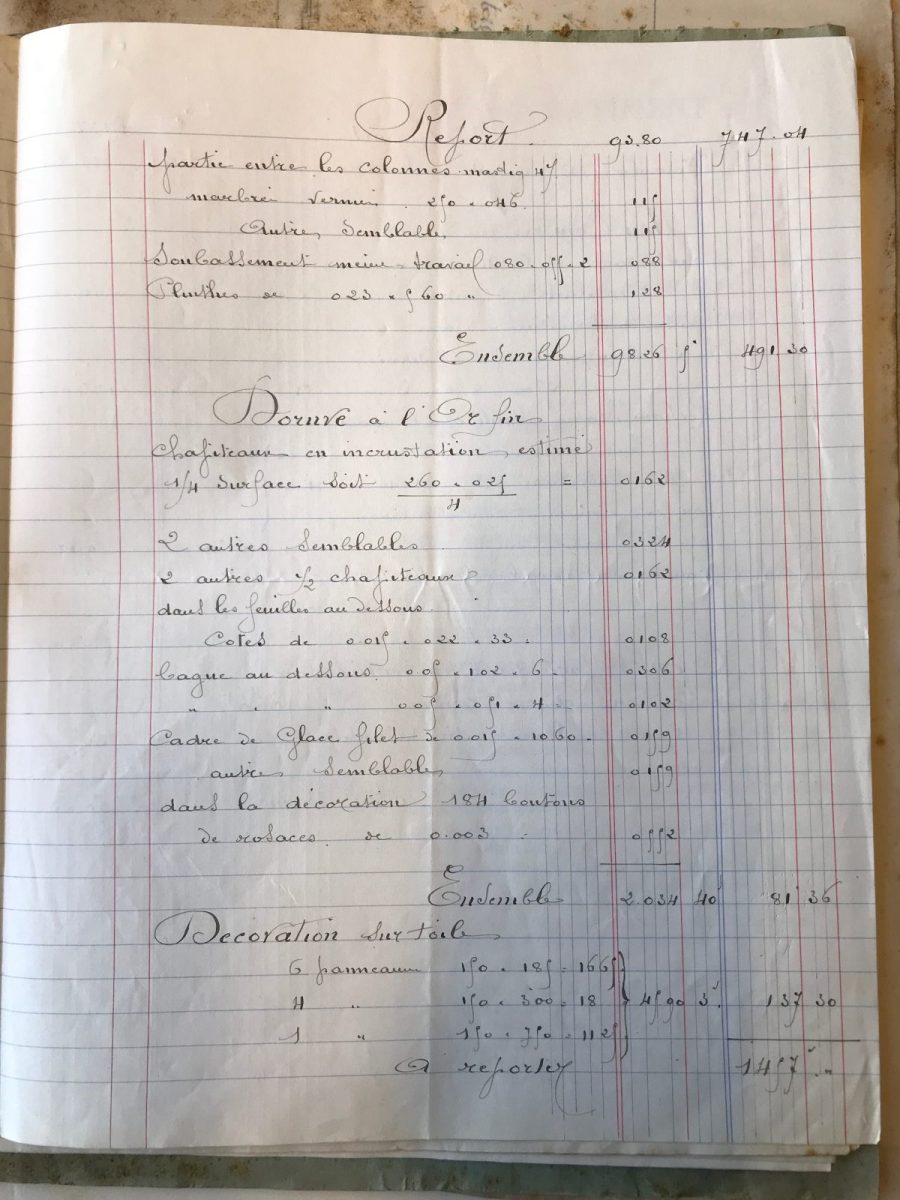 Report. 93.80 747.04
partie entre les colonnes mastiq 4f
marbré verni . 250 . 046. 115
Autre Semblable 115
Soubassement meme travail 080 . 055 . 2 088
Plinthes de 023 . 560 " 1,28
Ensemble 98.26 5f 491 30
Dorure à l'Or fin
Chapiteaux en incrustation, estimé
1/4 Surface Soit 260 . 025 / 4 = 0162
2 autres Semblables 0324
2 autres 1/2 chapiteaux 0162
dans les feuilles au dessous.
Cotés de 0.015 . 022 . 33 = 0108
bague au dessous. 005 . 102 . 6 = 0306
" " " 005 . 051 . 4 = 0102
Cadre de Glace filet de 0.015 . 1060 . 0159
autre Semblable 0159
dans la décoration 184 boutons
de rosaces de 0.003 = 0552
Ensemble 2.034 40f 81f 36
Decoration sur toile
6 panneaux 150 . 185 = 1665
4 " 150 . 300 = 18 } 4590 3f. 137 30
1 " 150 . 750 = 1125
A reporter 1457f "